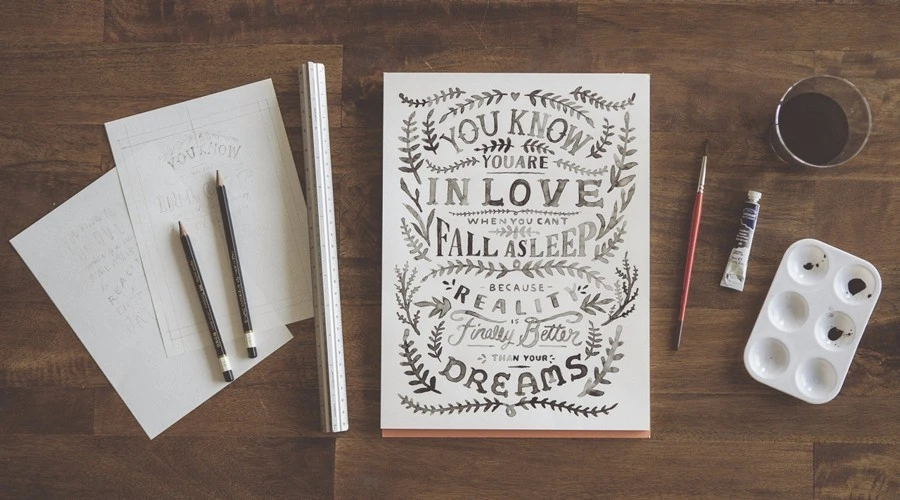 YOU KNOW
YOU ARE
IN LOVE
WHEN YOU CANT
FALL ASLEEP
BECAUSE
REALITY
IS
Finally Better
THAN YOUR
DREAMS
YOU KNOW